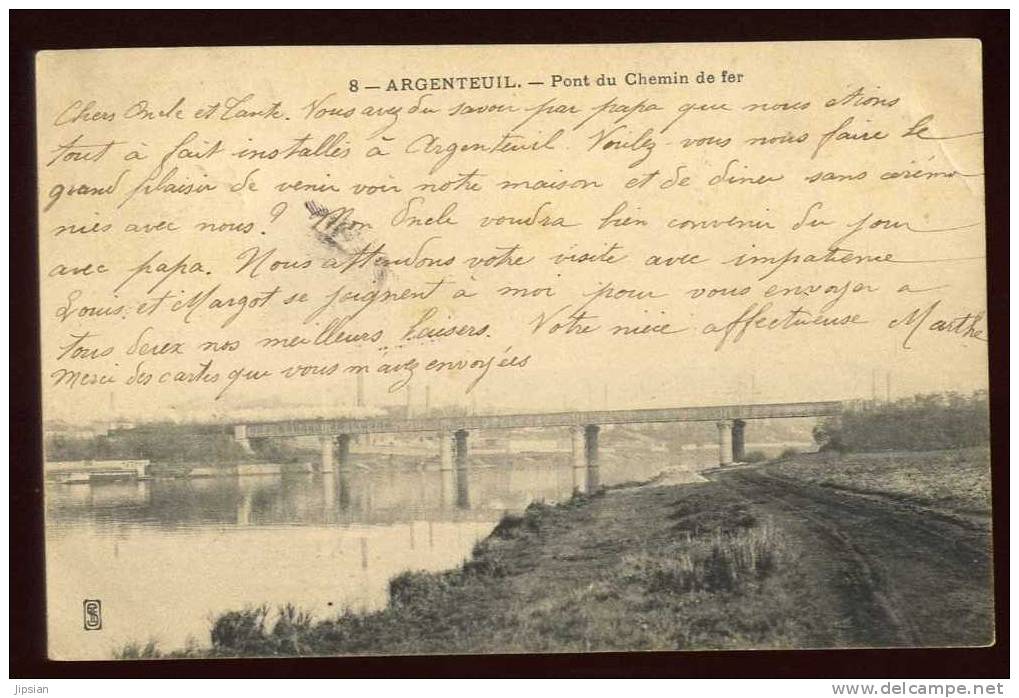 8 — ARGENTEUIL. — Pont du Chemin de fer
Chers Oncle et Tante. Vous avez du savoir par papa que nous étions
tout à fait installés à Argenteuil. Voulez-vous nous faire le
grand plaisir de venir voir notre maison et de diner sans cérémo
nies avec nous? Mon Oncle voudra bien convenir du jour
avec papa. Nous attendons votre visite avec impatience
Louis et Margot se joignent à moi pour vous envoyer a
tous deux nos meilleurs baisers. Votre nièce affectueuse Marthe
Merci des cartes que vous m'avez envoyées
jipsian
www.delcampe.net